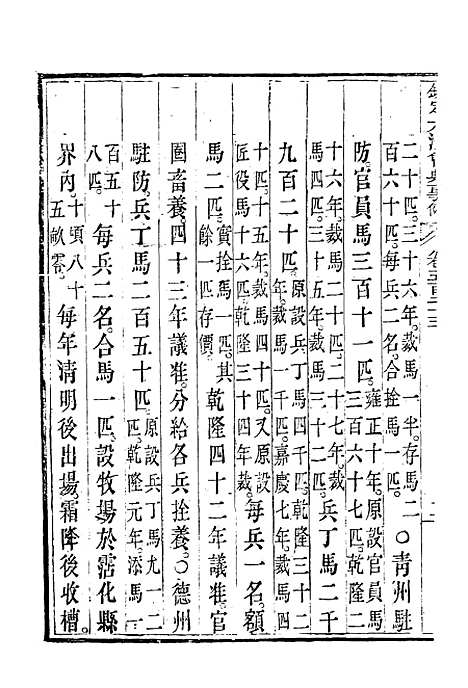 欽定大清會典事例 卷五百二十三
二十匹。三十六年。裁馬一半。存馬二
百六十匹。每兵二名。合拴馬一匹。○青州駐
防。官員馬三百十一匹。雍正十年。原設官員馬
三百六十七匹。乾隆二
十六年。裁馬二十匹。二十七年。裁
馬四匹。三十五年。裁馬三十二匹。兵丁馬二千
九百二十匹。原設兵丁馬四千匹。乾隆三十二
年。裁馬一千匹。嘉慶七年。裁馬二
十匹。十五年。裁馬四十匹。又原設
匠役馬十六匹。乾隆三十四年裁。每兵一名。額
馬二匹。實拴馬一匹。其
餘一匹存價。乾隆四十二年議准。官
圈畜養。四十三年議准。分給各兵拴養。○德州
駐防。兵丁馬二百五十四匹。原設兵丁馬九
匹。乾隆元年。添馬一
百五十
八匹。每兵二名。合馬一匹。設牧場於霑化縣
界內。十頃八十
五畝零。每年清明後出場。霜降後收槽。